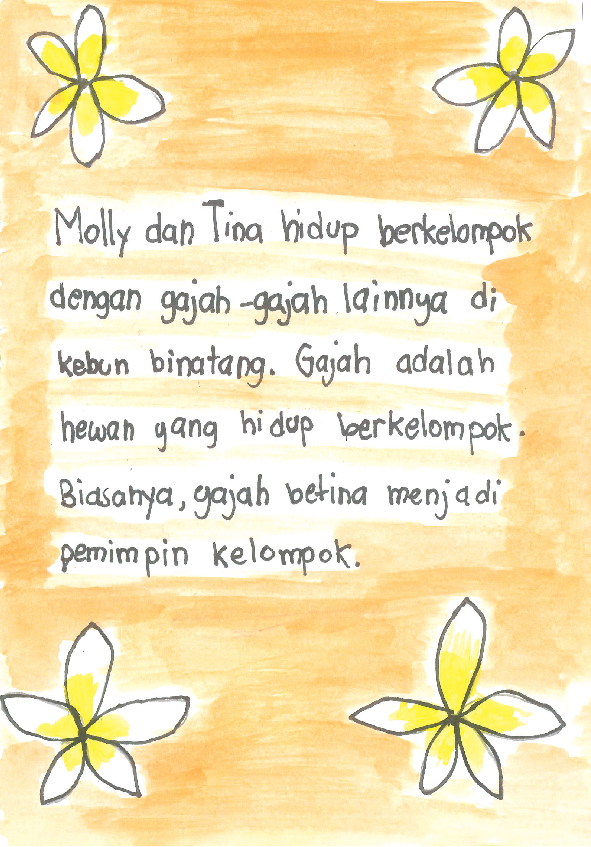 Molly dan Tina hidup berkelompok
dengan gajah-gajah lainnya di
kebun binatang. Gajah adalah
hewan yang hidup berkelompok.
Biasanya, gajah betina menjadi
pemimpin kelompok.